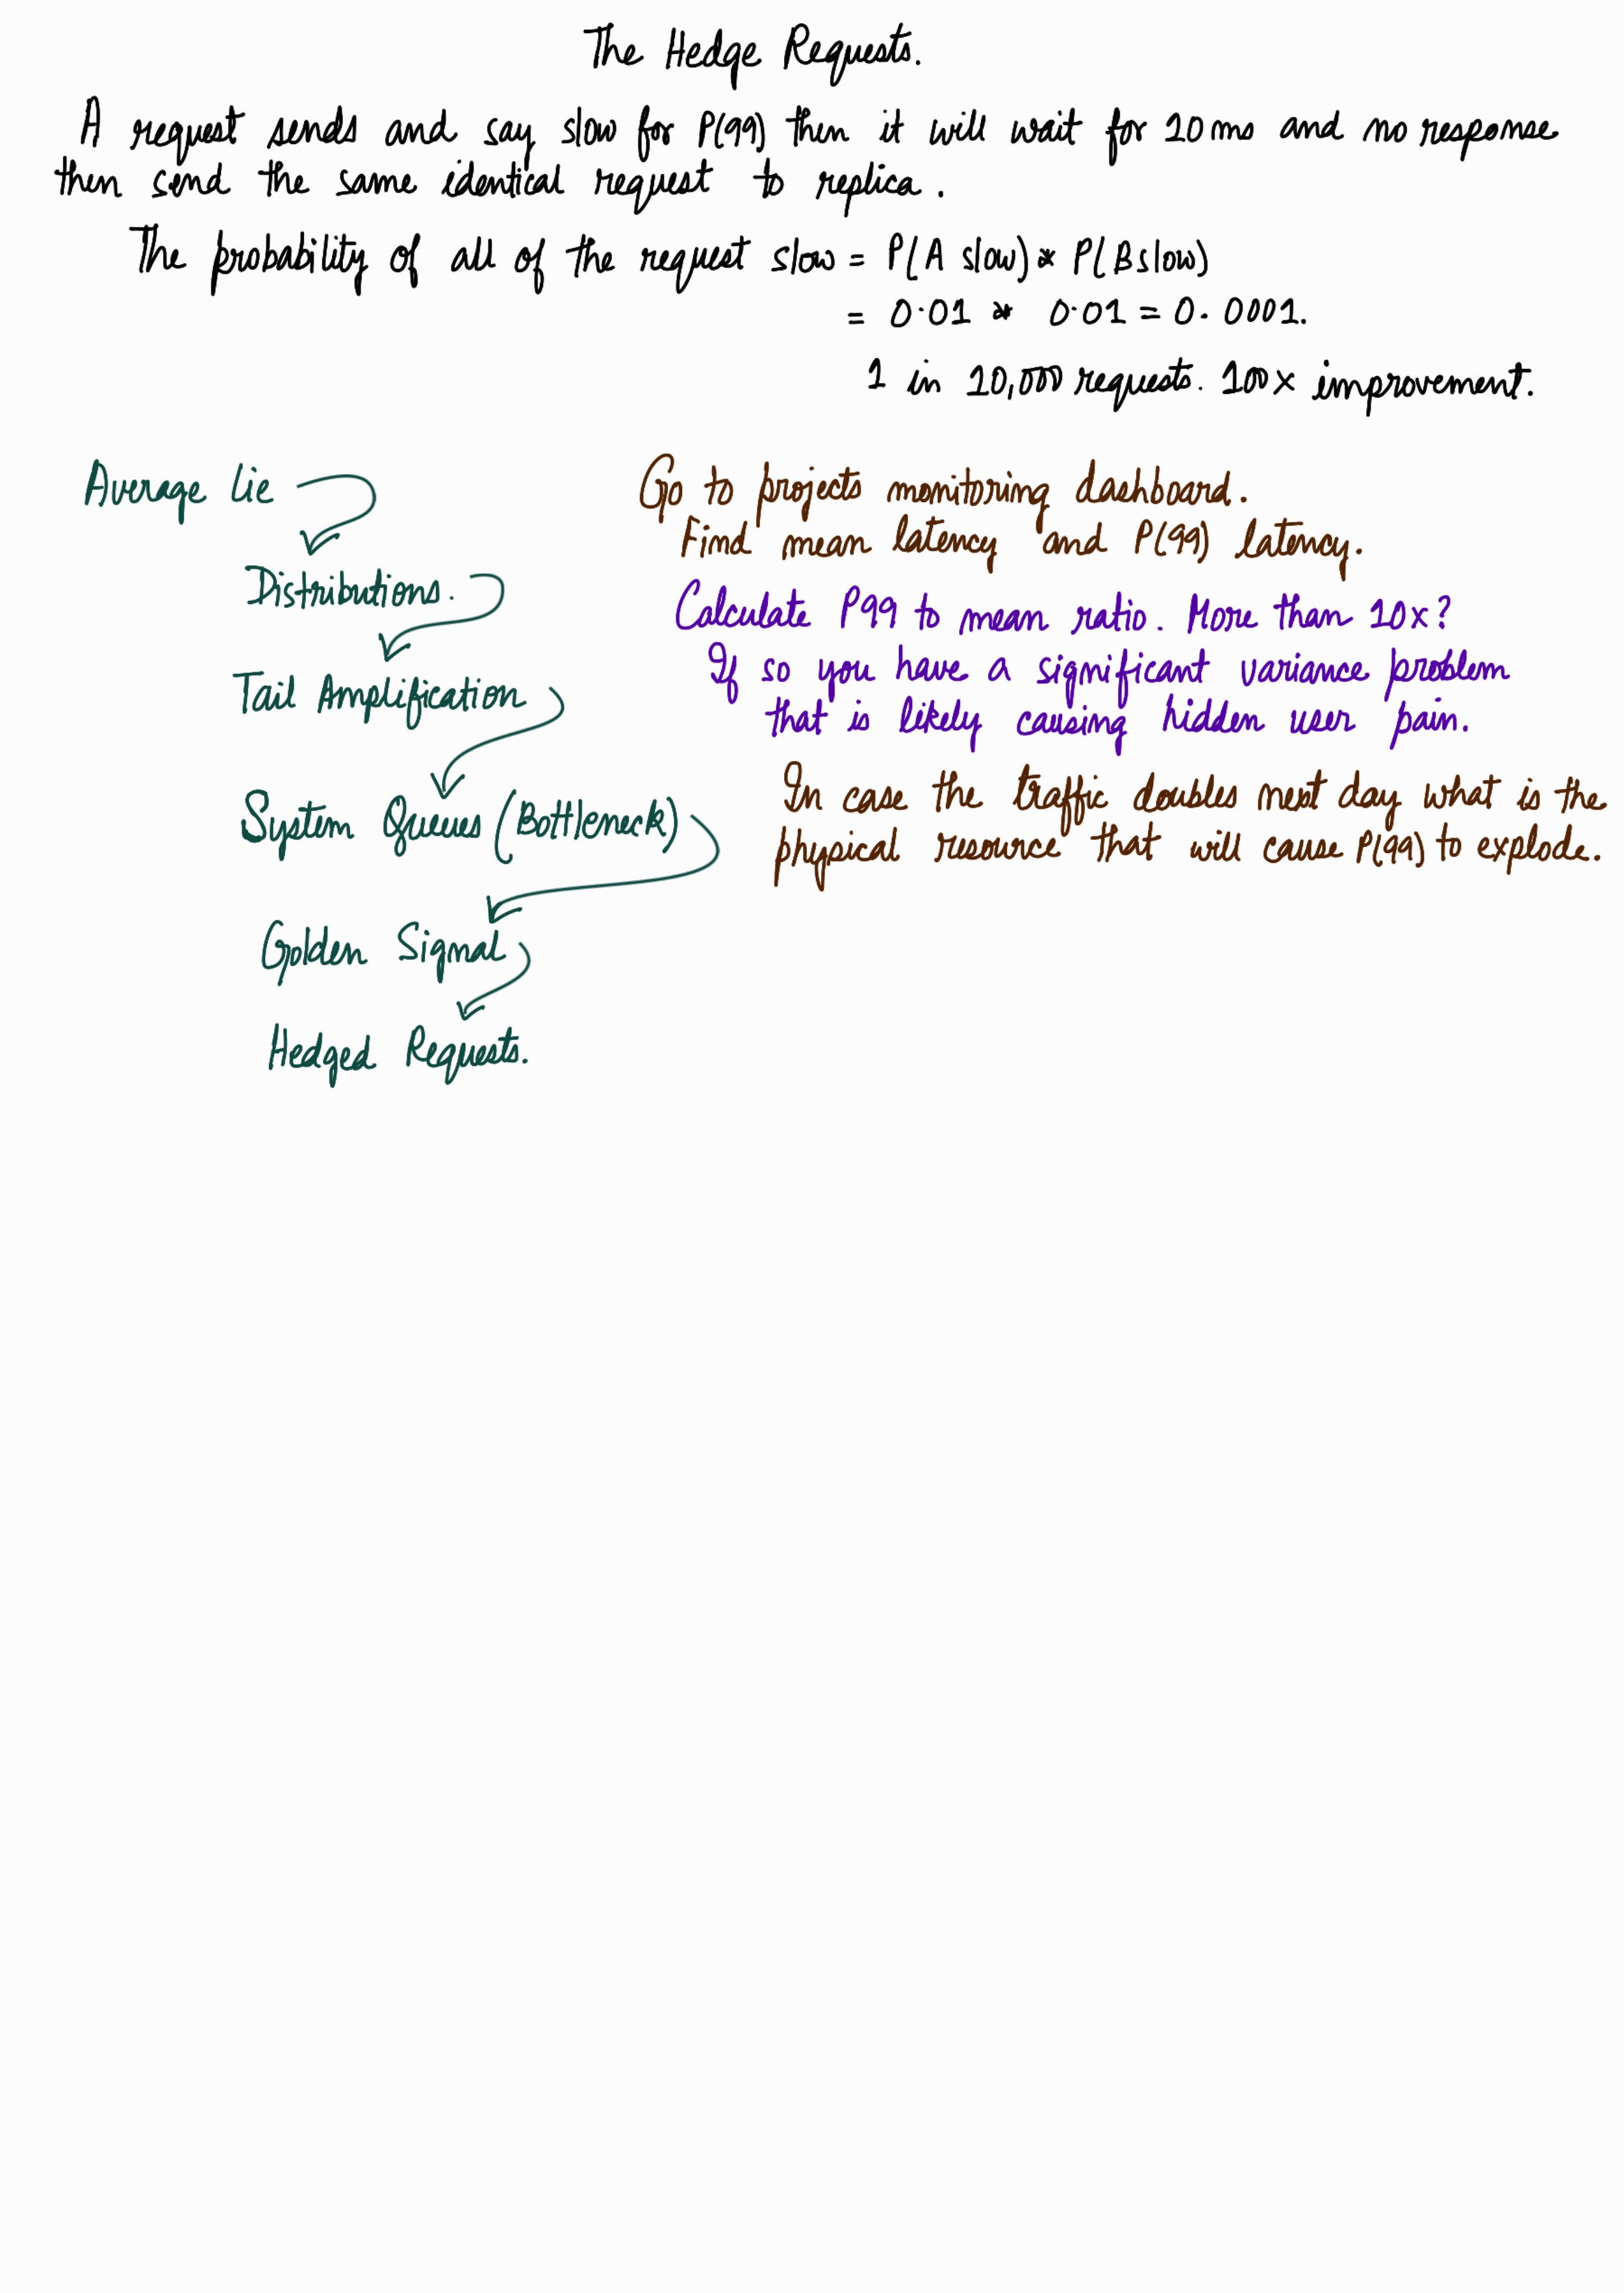 The Hedge Requests.
A request sends and say slow for P(99) then it will wait for 10 ms and no response
then send the same identical request to replica.
The probability of all of the request slow = P(A slow) * P(B slow)
= 0.01 * 0.01 = 0.0001.
1 in 10,000 requests. 100x improvement.
Average Lie
Distributions.
Tail Amplification
System Queues (Bottleneck)
Golden Signal
Hedged Requests.
Go to projects monitoring dashboard.
Find mean latency and P(99) latency.
Calculate P99 to mean ratio. More than 10x?
If so you have a significant variance problem
that is likely causing hidden user pain.
In case the traffic doubles next day what is the
physical resource that will cause P(99) to explode.